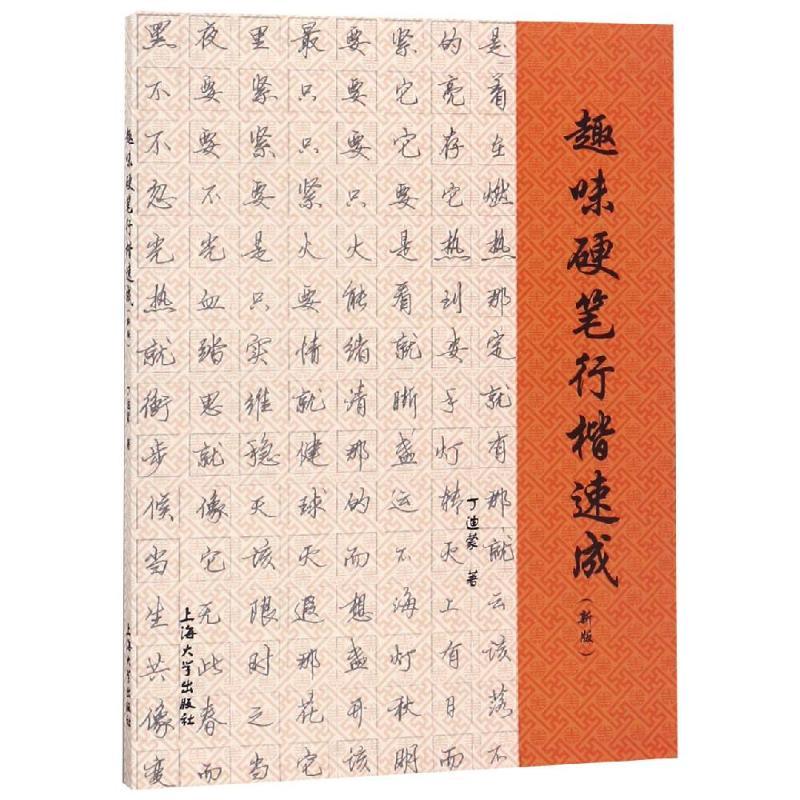 趣味硬笔行楷速成
（新版）
丁迪蒙 著
上海大学出版社
黑夜里最要紧的是
不要紧只要它亮着
不要紧只要它存在
忽不要紧只要它燃
光光是火火是热热
热血只要能看到那
就踏实情绪就安定
衡思维就清晰手就
步就稳健那盏灯有
候像灭球的运转那
当它该灭而不灭就
生无限遐想海上云
共此时那盏灯有该
像春之花开秋日落
变而当它该明而不
趣味硬笔行楷速成（新版） 丁迪蒙 著 上海大学出版社